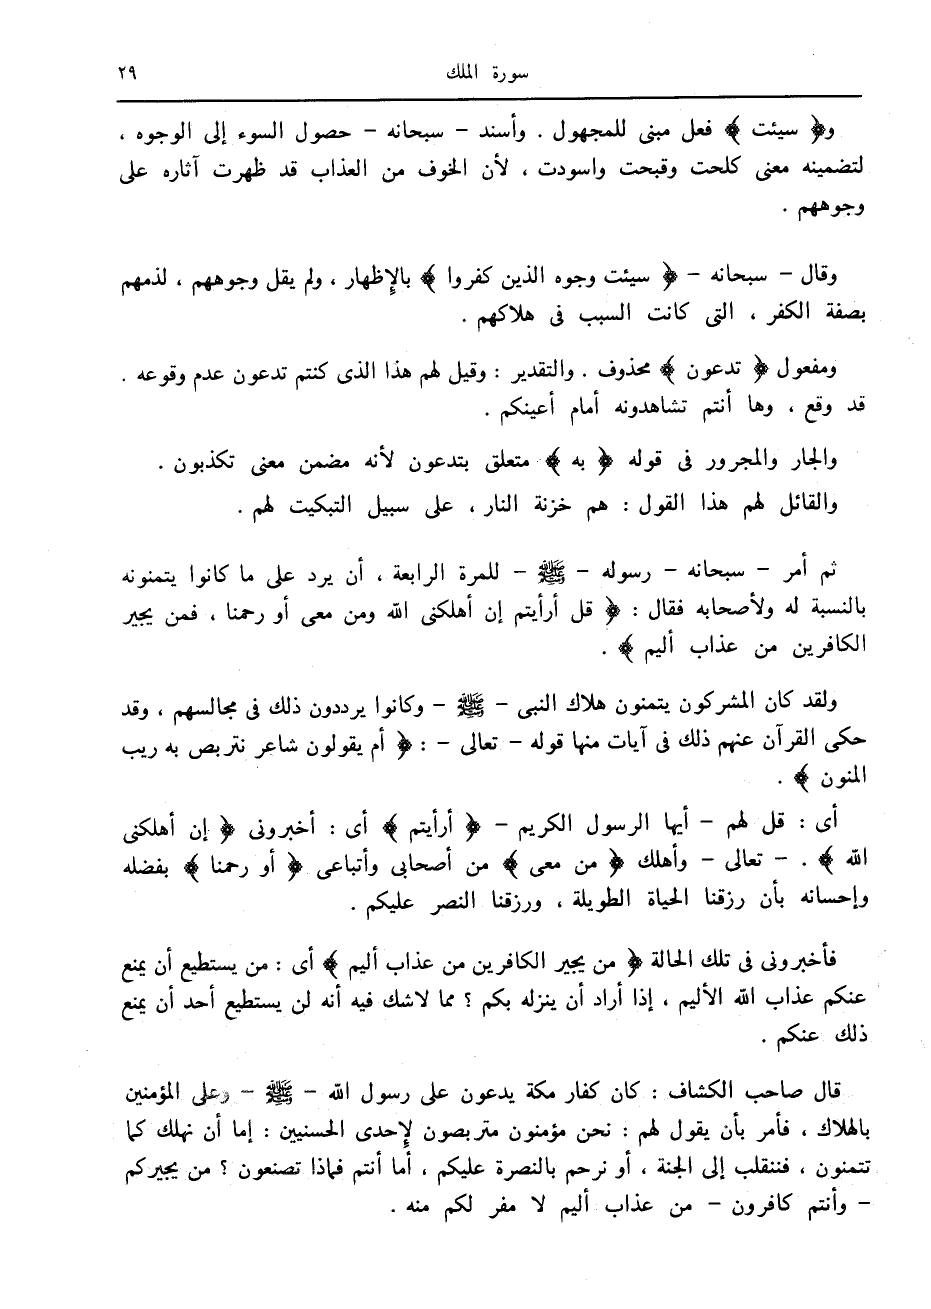 سورة الملك ٢٩
و﴿ سيئت ﴾ فعل مبنى للمجهول . وأسند – سبحانه – حصول السوء إلى الوجوه ،
لتضمينه معنى كلحت وقبحت واسودت ، لأن الخوف من العذاب قد ظهرت آثاره على
وجوههم .
وقال – سبحانه – ﴿ سيئت وجوه الذين كفروا ﴾ بالإظهار ، ولم يقل وجوههم ، لذمهم
بصفة الكفر ، التى كانت السبب فى هلاكهم .
ومفعول ﴿ تدعون ﴾ محذوف . والتقدير : وقيل لهم هذا الذى كنتم تدعون عدم وقوعه .
قد وقع ، وها أنتم تشاهدونه أمام أعينكم .
والجار والمجرور فى قوله ﴿ به ﴾ متعلق بتدعون لأنه مضمن معنى تكذبون .
والقائل لهم هذا القول : هم خزنة النار ، على سبيل التبكيت لهم .
ثم أمر – سبحانه – رسوله – ﷺ – للمرة الرابعة ، أن يرد على ما كانوا يتمنونه
بالنسبة له ولأصحابه فقال : ﴿ قل أرأيتم إن أهلكنى الله ومن معى أو رحمنا ، فمن يجير
الكافرين من عذاب أليم ﴾ .
ولقد كان المشركون يتمنون هلاك النبى – ﷺ – وكانوا يرددون ذلك فى مجالسهم ، وقد
حكى القرآن عنهم ذلك فى آيات منها قوله – تعالى – : ﴿ أم يقولون شاعر نتربص به ريب
المنون ﴾ .
أى : قل لهم – أيها الرسول الكريم – ﴿ أرأيتم ﴾ أى : أخبرونى ﴿ إن أهلكنى
الله ﴾ . – تعالى – وأهلك ﴿ من معى ﴾ من أصحابى وأتباعى ﴿ أو رحمنا ﴾ بفضله
وإحسانه بأن رزقنا الحياة الطويلة ، ورزقنا النصر عليكم .
فأخبرونى فى تلك الحالة ﴿ من يجير الكافرين من عذاب أليم ﴾ أى : من يستطيع أن يمنع
عنكم عذاب الله الأليم ، إذا أراد أن ينزله بكم ؟ مما لاشك فيه أنه لن يستطيع أحد أن يمنع
ذلك عنكم .
قال صاحب الكشاف : كان كفار مكة يدعون على رسول الله – ﷺ – وعلى المؤمنين
بالهلاك ، فأمر بأن يقول لهم : نحن مؤمنون متربصون لإحدى الحسنيين : إما أن نهلك كما
تتمنون ، فننقلب إلى الجنة ، أو نرحم بالنصرة عليكم ، أما أنتم فماذا تصنعون ؟ من يجيركم
– وأنتم كافرون – من عذاب أليم لا مفر لكم منه .